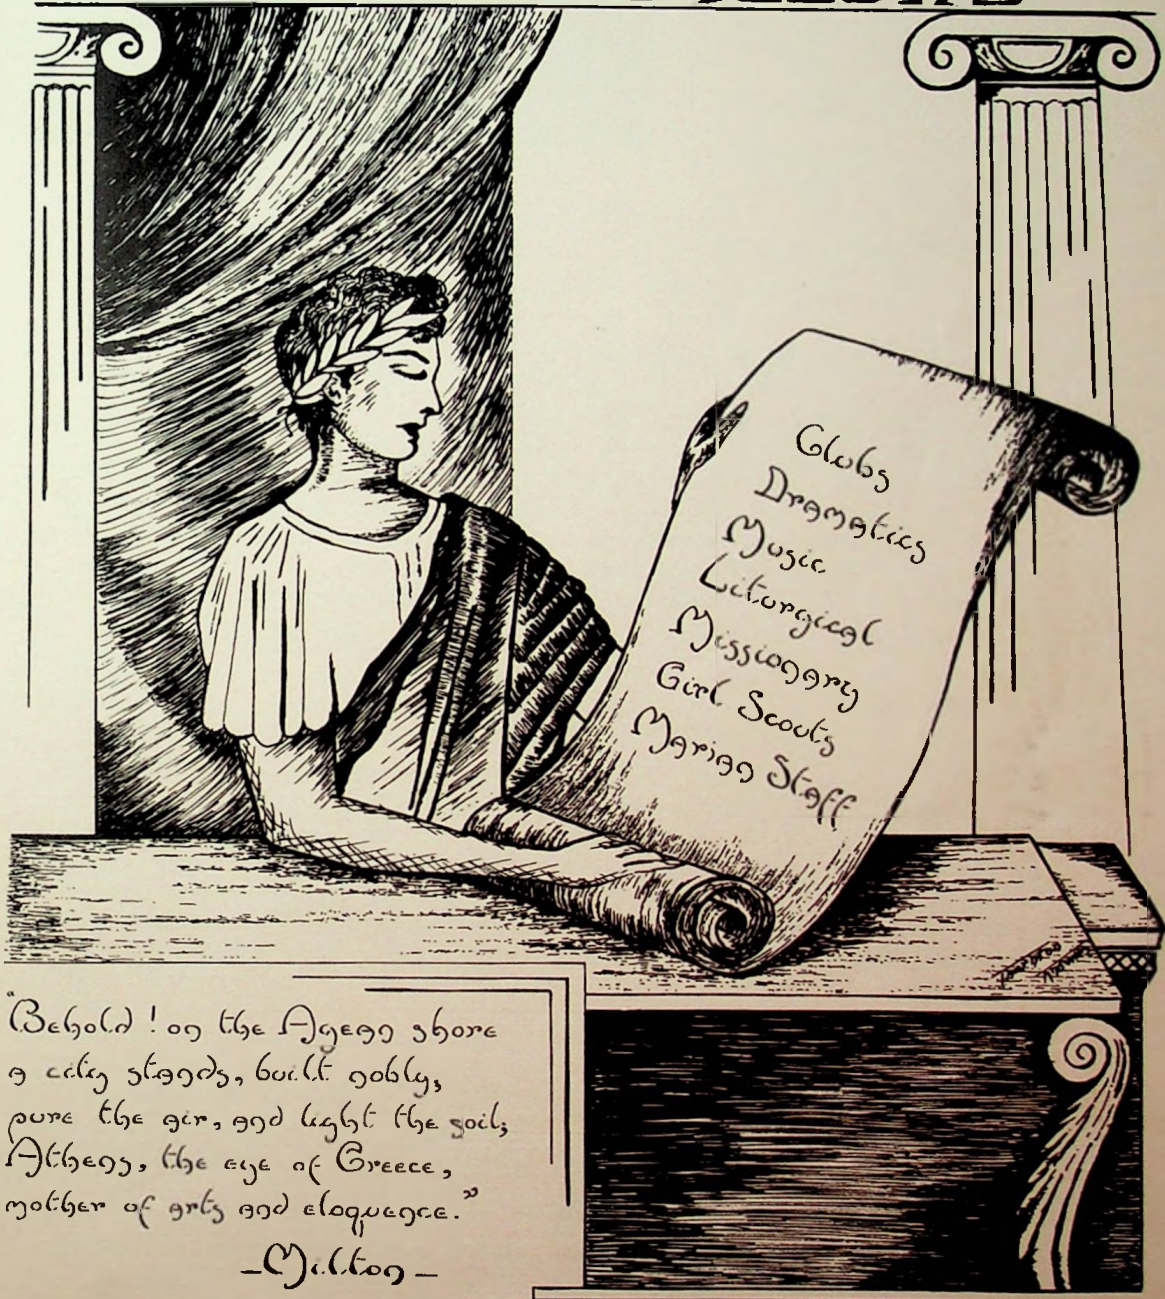 Clubs
Dramatics
Music
Liturgical
Missionary
Girl Scouts
Marian Staff
"Behold! on the Agean shore
a city stands, built nobly,
pure the air, and light the soil;
Athens, the eye of Greece,
mother of arts and eloquence."
—Milton—